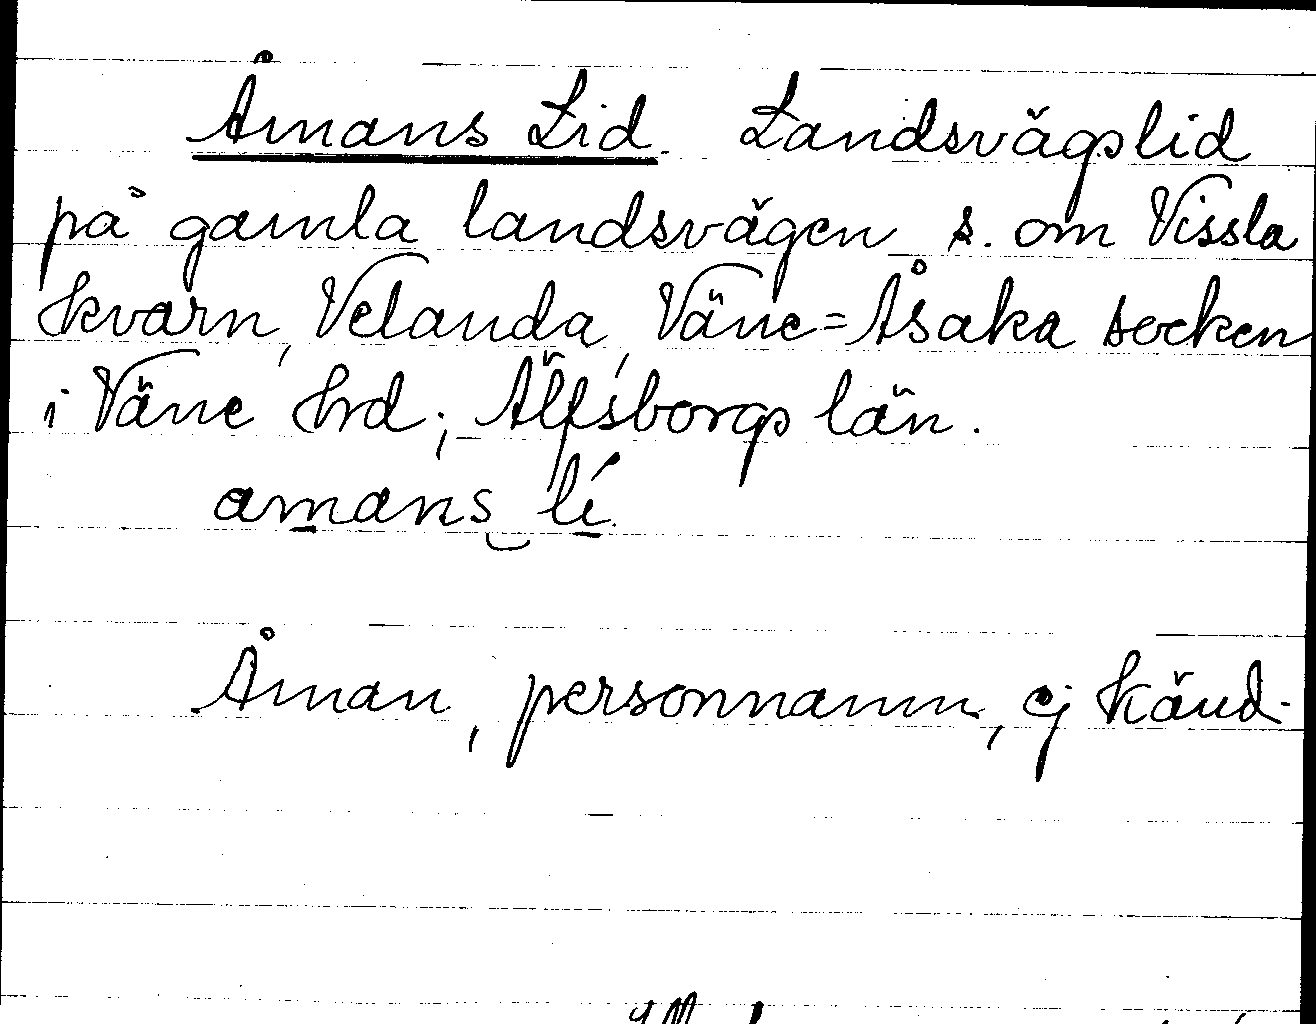 Åmans Lid. Landsvägslid
på gamla landsvägen s. om Vissla
kvarn, Velanda, Väne=Åsaka socken
i Väne hrd; Älfsborgs län.
amans lí.
Åman, personnamn, ej känd.